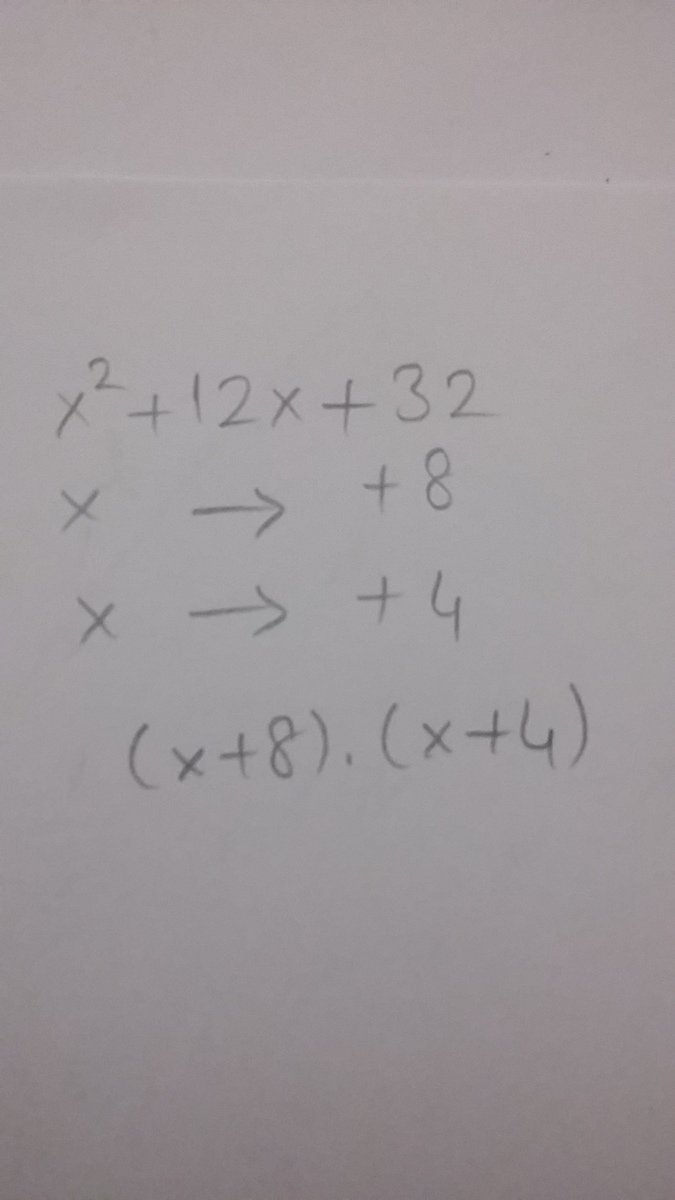 x²+12x+32
x → +8
x → +4
(x+8).(x+4)